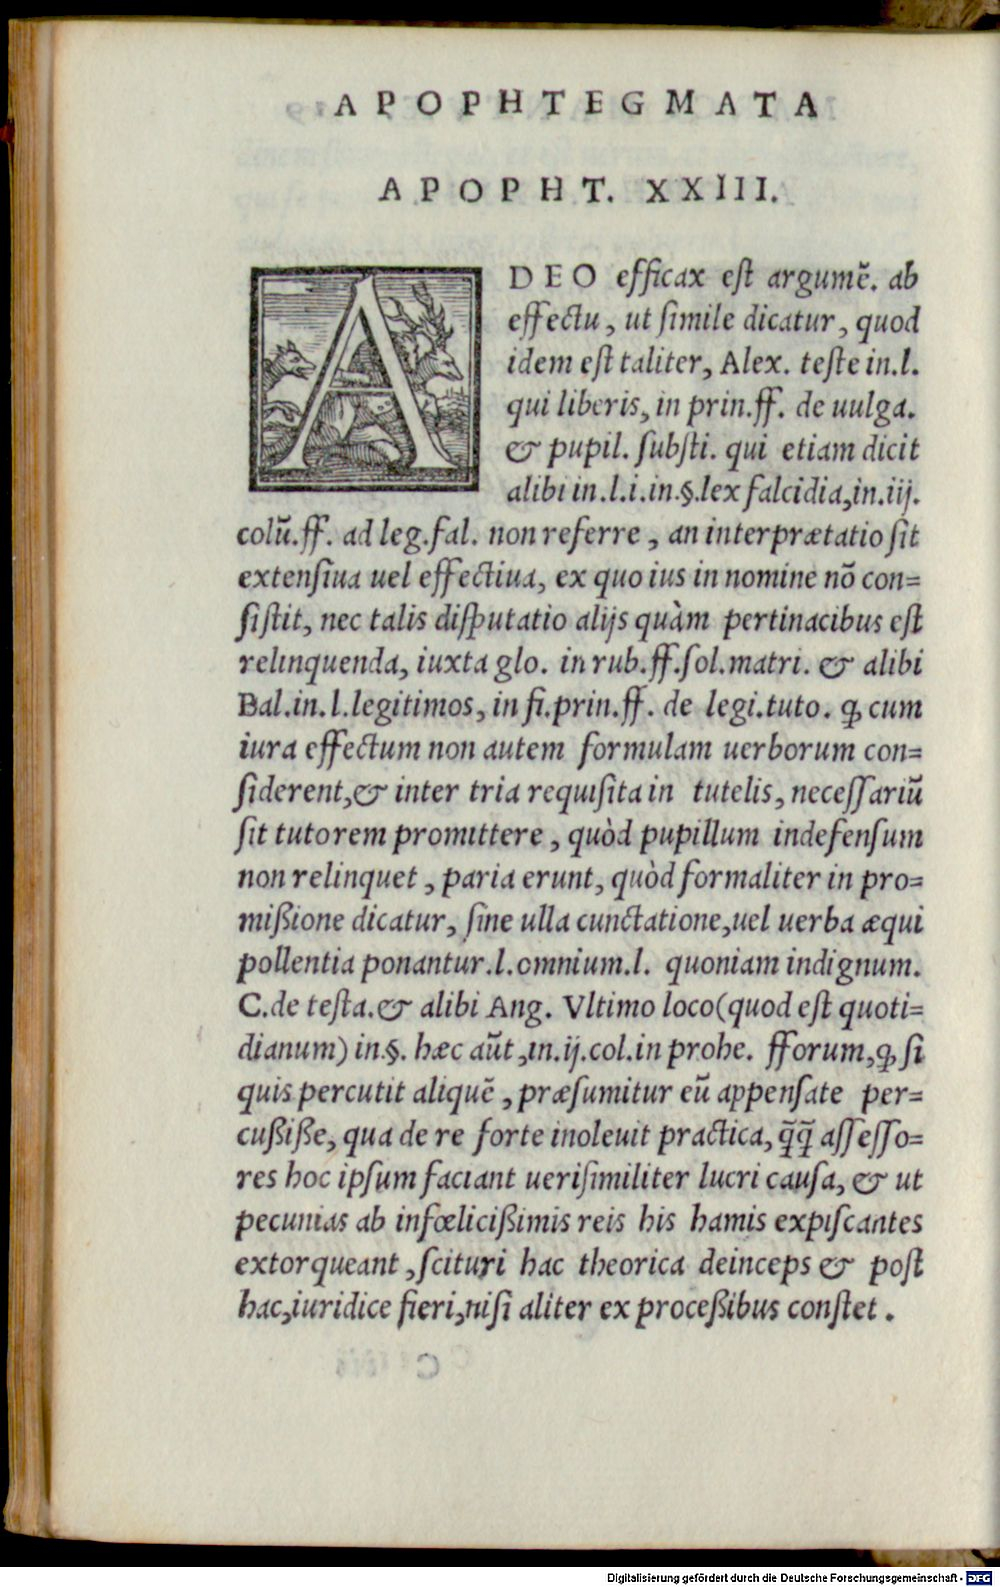 APOPHTEGMATA
APOPHT. XXIII.
ADEO efficax est argumẽ. ab
effectu, ut simile dicatur, quod
idem est taliter, Alex. teste in.l.
qui liberis, in prin.ff. de uulga.
& pupil. substi. qui etiam dicit
alibi in.l.i.in.§.lex falcidia,in.iij.
colũ.ff. ad leg.fal. non referre, an interprætatio sit
extensiua uel effectiua, ex quo ius in nomine nõ con=
sistit, nec talis disputatio alijs quàm pertinacibus est
relinquenda, iuxta glo. in rub.ff.sol.matri. & alibi
Bal.in.l.legitimos, in fi.prin.ff. de legi.tuto. ꝙ cum
iura effectum non autem formulam uerborum con=
siderent,& inter tria requisita in tutelis, necessariũ
sit tutorem promittere, quòd pupillum indefensum
non relinquet, paria erunt, quòd formaliter in pro=
mißione dicatur, sine ulla cunctatione,uel uerba æqui
pollentia ponantur.l.omnium.l. quoniam indignum.
C.de testa.& alibi Ang. Vltimo loco(quod est quoti=
dianum) in.§. hæc aũt,in.ij.col.in prohe. fforum,ꝙ si
quis percutit aliquẽ, præsumitur eũ appensate per=
cußiße, qua de re forte inoleuit practica, q̃q̃ assesso=
res hoc ipsum faciant uerisimiliter lucri causa, & ut
pecunias ab infœlicißimis reis his hamis expiscantes
extorqueant, scituri hac theorica deinceps & post
hac,iuridice fieri,nisi aliter ex proceßibus constet.
Digitalisierung gefördert durch die Deutsche Forschungsgemeinschaft - DFG